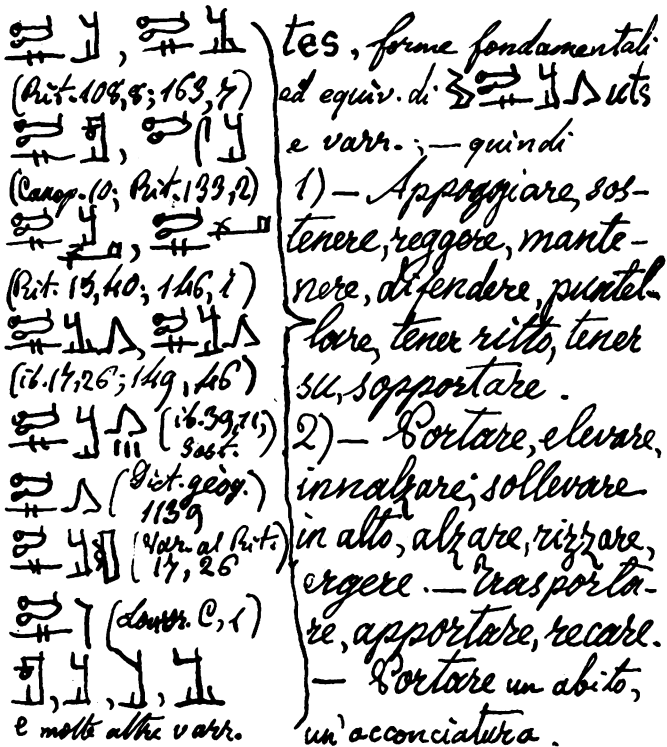 (Rit. 108,8; 163,7)
(Canop. 10; Rit. 133,2)
(Rit. 15,40; 146,1)
(ib. 17,26; 149,46)
(ib. 39,11;)
Sost.
(Dict. géog.)
1139
(Var. al Rit.)
17, 26
(Louvr. C, 1)
e molte altre varr.
tes, forme fondamentali
ed equiv. di uts
e varr. ; — quindi
1) — Appoggiare, sos-
tenere, reggere, mante-
nere, difendere, puntel-
lare, tener ritto, tener
su, sopportare .
2) — Portare, elevare,
innalzare; sollevare
in alto, alzare, rizzare,
ergere . — Trasporta-
re, apportare, recare.
— Portare un abito,
un'acconciatura .